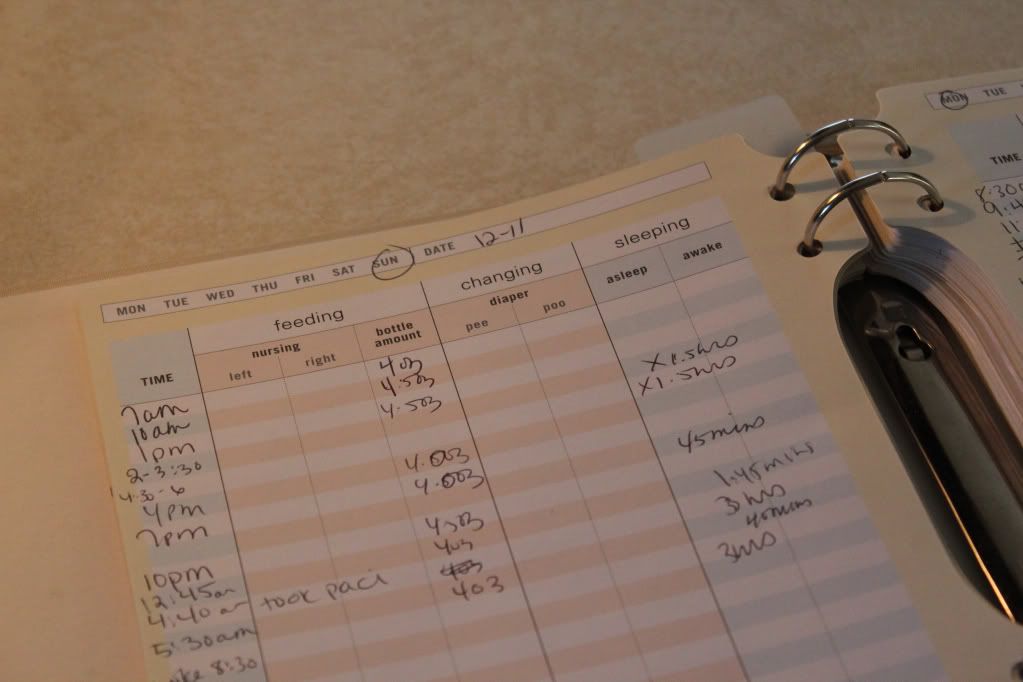 MON TUE WED THU FRI SAT SUN DATE 12-11
feeding changing sleeping
nursing bottle amount diaper asleep awake
TIME left right pee poo
7am 4oz
10am 4.5oz x1.5hrs
1pm 4.5oz x1.5hrs
2-3:30
4:30-6 45mins
4pm 4.0oz
7pm 4.0oz 1.45mins
3hrs
10pm 4oz 40mins
12:45am 4oz
4:40am took paci 3hrs
5:30am 4oz
8:30
MON TUE
TIME
8:30
9:4
11: